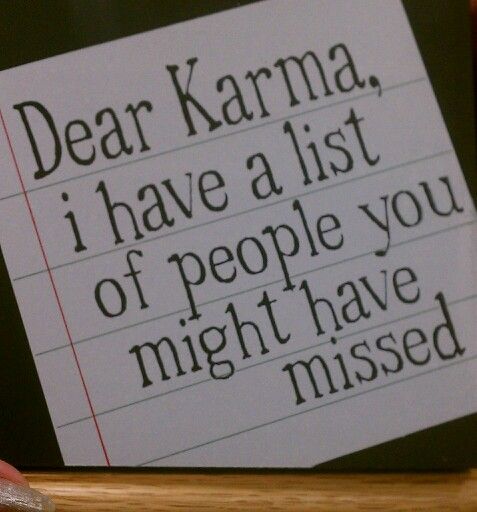 Dear Karma,
i have a list
of people you
might have
missed